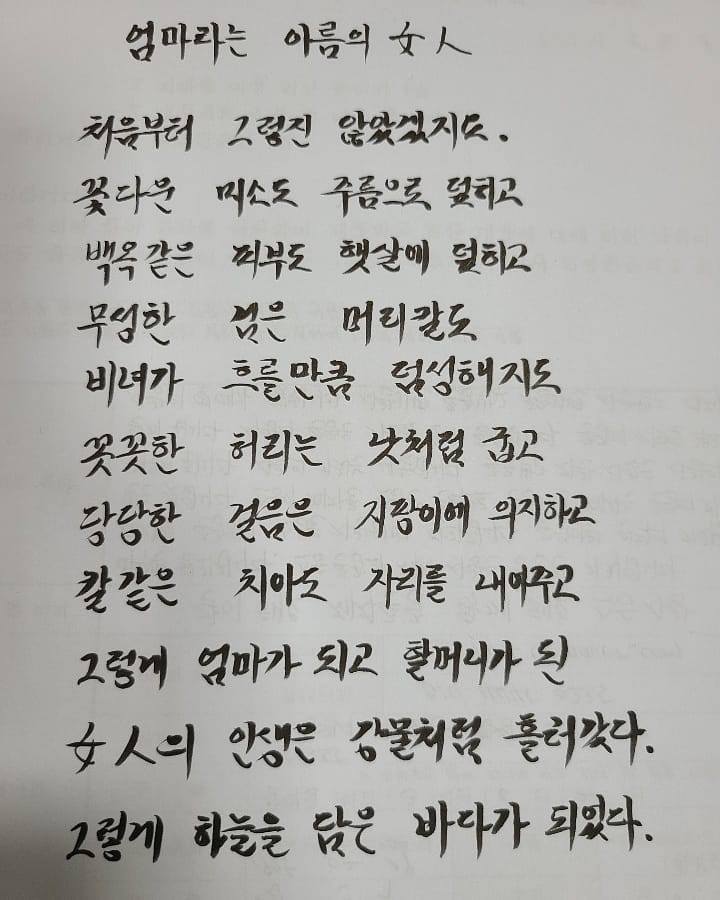 엄마라는 이름의 女人
처음부터 그렇진 않았겠지요.
꽃다운 미소도 주름으로 덮히고
백옥같은 피부도 햇살에 덮히고
무성한 검은 머리칼도
비녀가 흐를만큼 덤성해지도
꼿꼿한 허리는 낫처럼 굽고
당당한 걸음은 지팡이에 의지하고
칼같은 치아도 자리를 내여주고
그렇게 엄마가 되고 할머니가 된
女人의 인생은 강물처럼 흘러갔다.
그렇게 하늘을 담은 바다가 되었다.